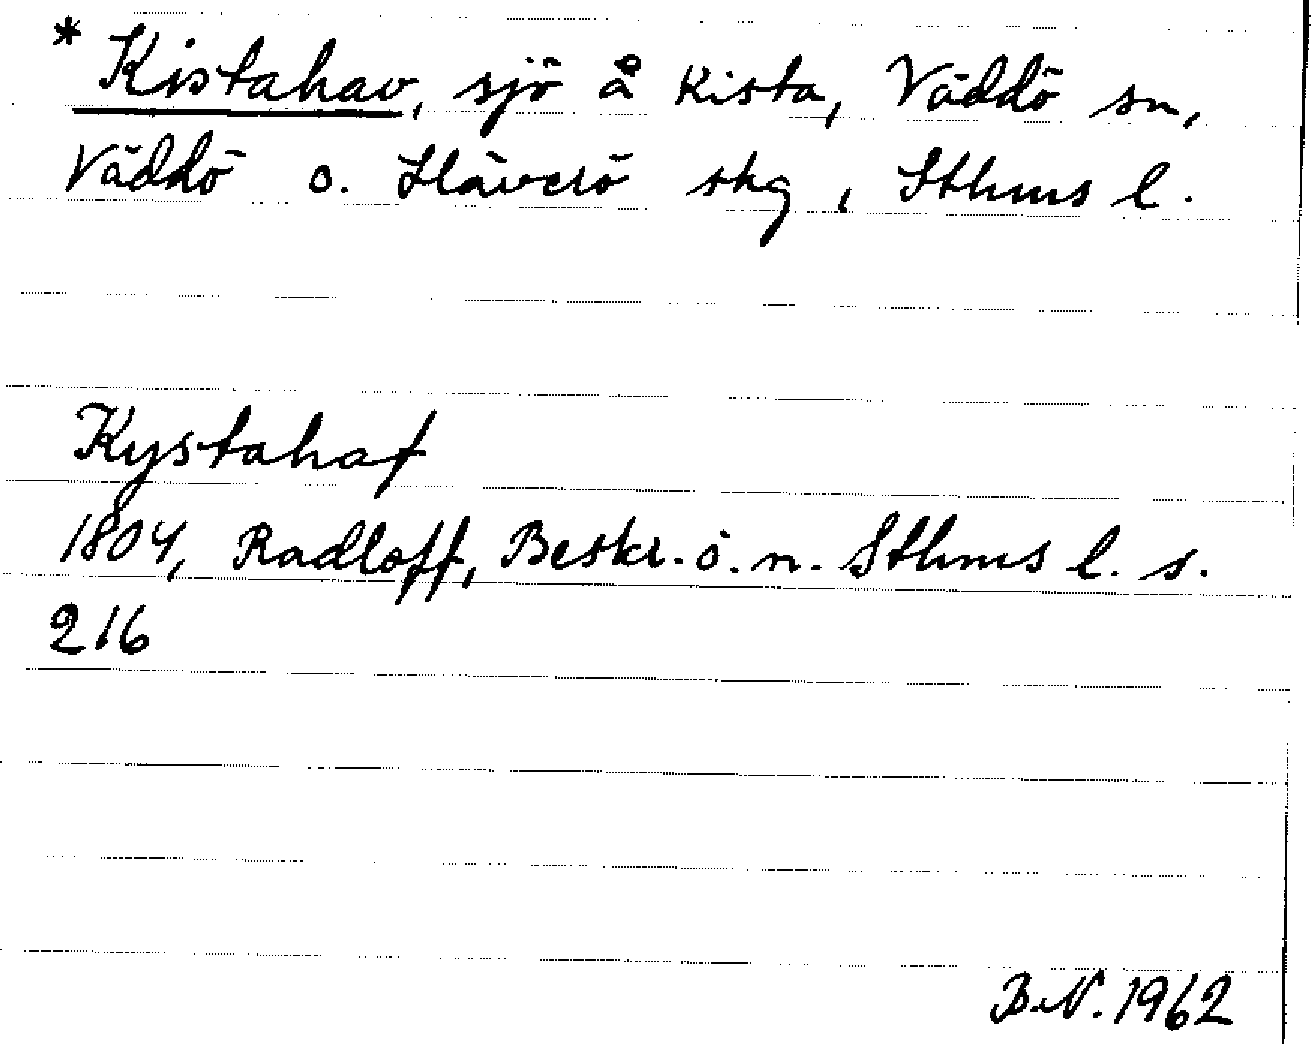 * Kistahav, sjö å Kista, Väddö sn,
Väddö o. Häverö skg, Sthms l.
Kystahaf
1804, Radloff, Beskr. ö. n. Sthms l. s.
216
B.N. 1962